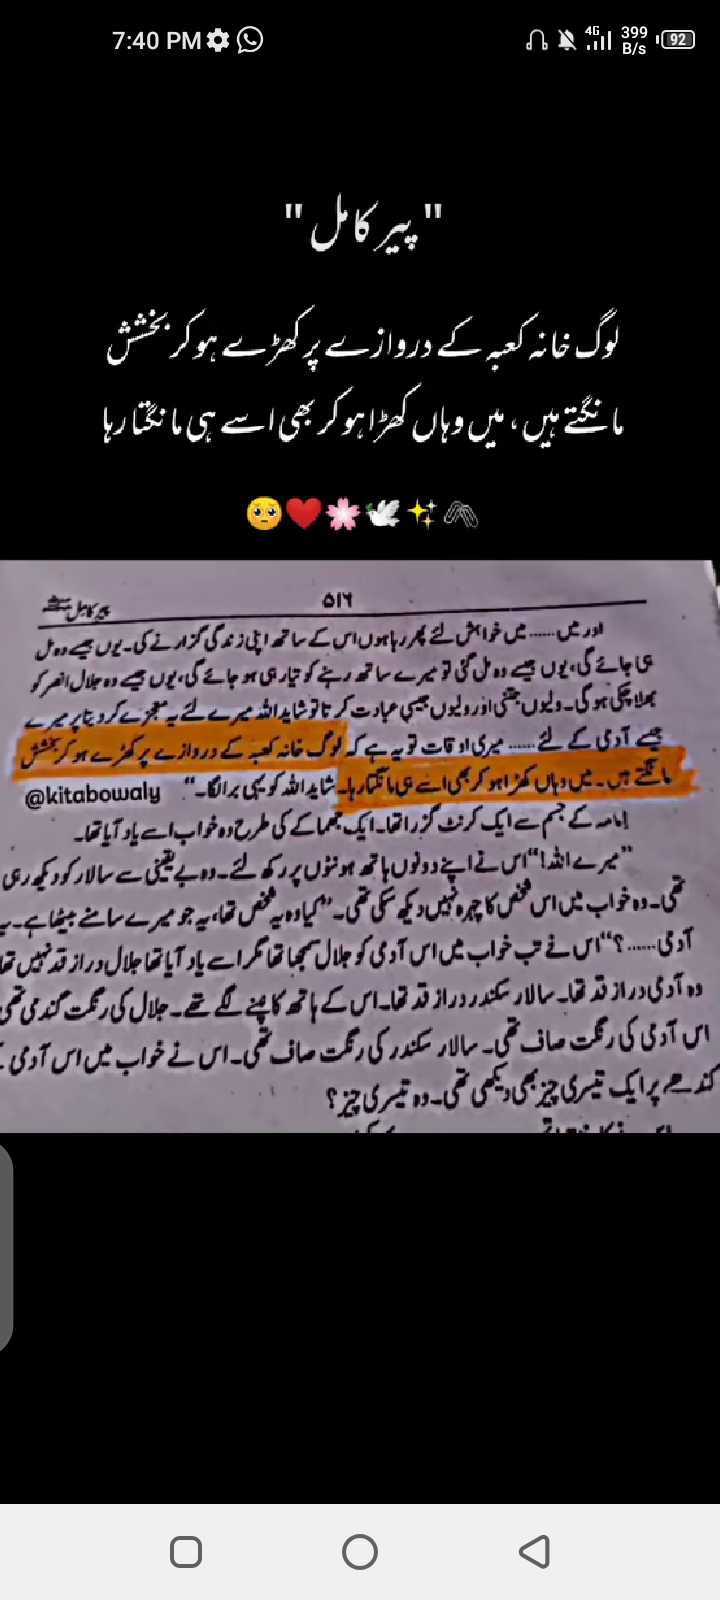 7:40 PM
4G 399 B/s 92
" پیر کامل "
لوگ خانہ کعبہ کے دروازے پر کھڑے ہو کر بخشش
مانگتے ہیں، میں وہاں کھڑا ہو کر بھی اسے ہی مانگتا رہا
۵۱۶
پیر کامل ﷺ
اور میں...... میں خواہش لئے پھر رہا ہوں اس کے ساتھ اپنی زندگی گزارنے کی۔ یوں جیسے وہ مل
ہی جائے گی، یوں جیسے وہ مل گئی تو میرے ساتھ رہنے کو تیار ہی ہو جائے گی، یوں جیسے وہ جلال انصر کو
بھلا چکی ہو گی۔ ولیوں جتنی اور ولیوں جیسی عبادت کرتا تو شاید اللہ میرے لئے یہ معجزے کر دیتا پر میرے
جیسے آدمی کے لئے...... میری اوقات تو یہ ہے کہ لوگ خانہ کعبہ کے دروازے پر کھڑے ہو کر بخشش
مانگتے ہیں۔ میں وہاں کھڑا ہو کر بھی اسے ہی مانگتا رہا۔ شاید اللہ کو یہی برا لگا۔“
@kitabowaly
امامہ کے جسم سے ایک کرنٹ گزرا تھا۔ ایک جھماکے کی طرح وہ خواب اسے یاد آیا تھا۔
”میرے اللہ!“ اس نے اپنے دونوں ہاتھ ہونٹوں پر رکھ لئے۔ وہ بے یقینی سے سالار کو دیکھ رہی
تھی۔ وہ خواب میں اس شخص کا چہرہ نہیں دیکھ سکی تھی۔ ”کیا وہ یہ شخص تھا، یہ جو میرے سامنے بیٹھا ہے۔ یہ
آدمی......؟“ اس نے تب خواب میں اس آدمی کو جلال سمجھا تھا مگر اسے یاد آیا تھا جلال دراز قد نہیں تھا
وہ آدمی دراز قد تھا۔ سالار سکندر دراز قد تھا۔ اس کے ہاتھ کانپنے لگے تھے۔ جلال کی رنگت گندمی تھی
اس آدمی کی رنگت صاف تھی۔ سالار سکندر کی رنگت صاف تھی۔ اس نے خواب میں اس آدمی
کندھے پر ایک تیسری چیز بھی دیکھی تھی۔ وہ تیسری چیز؟